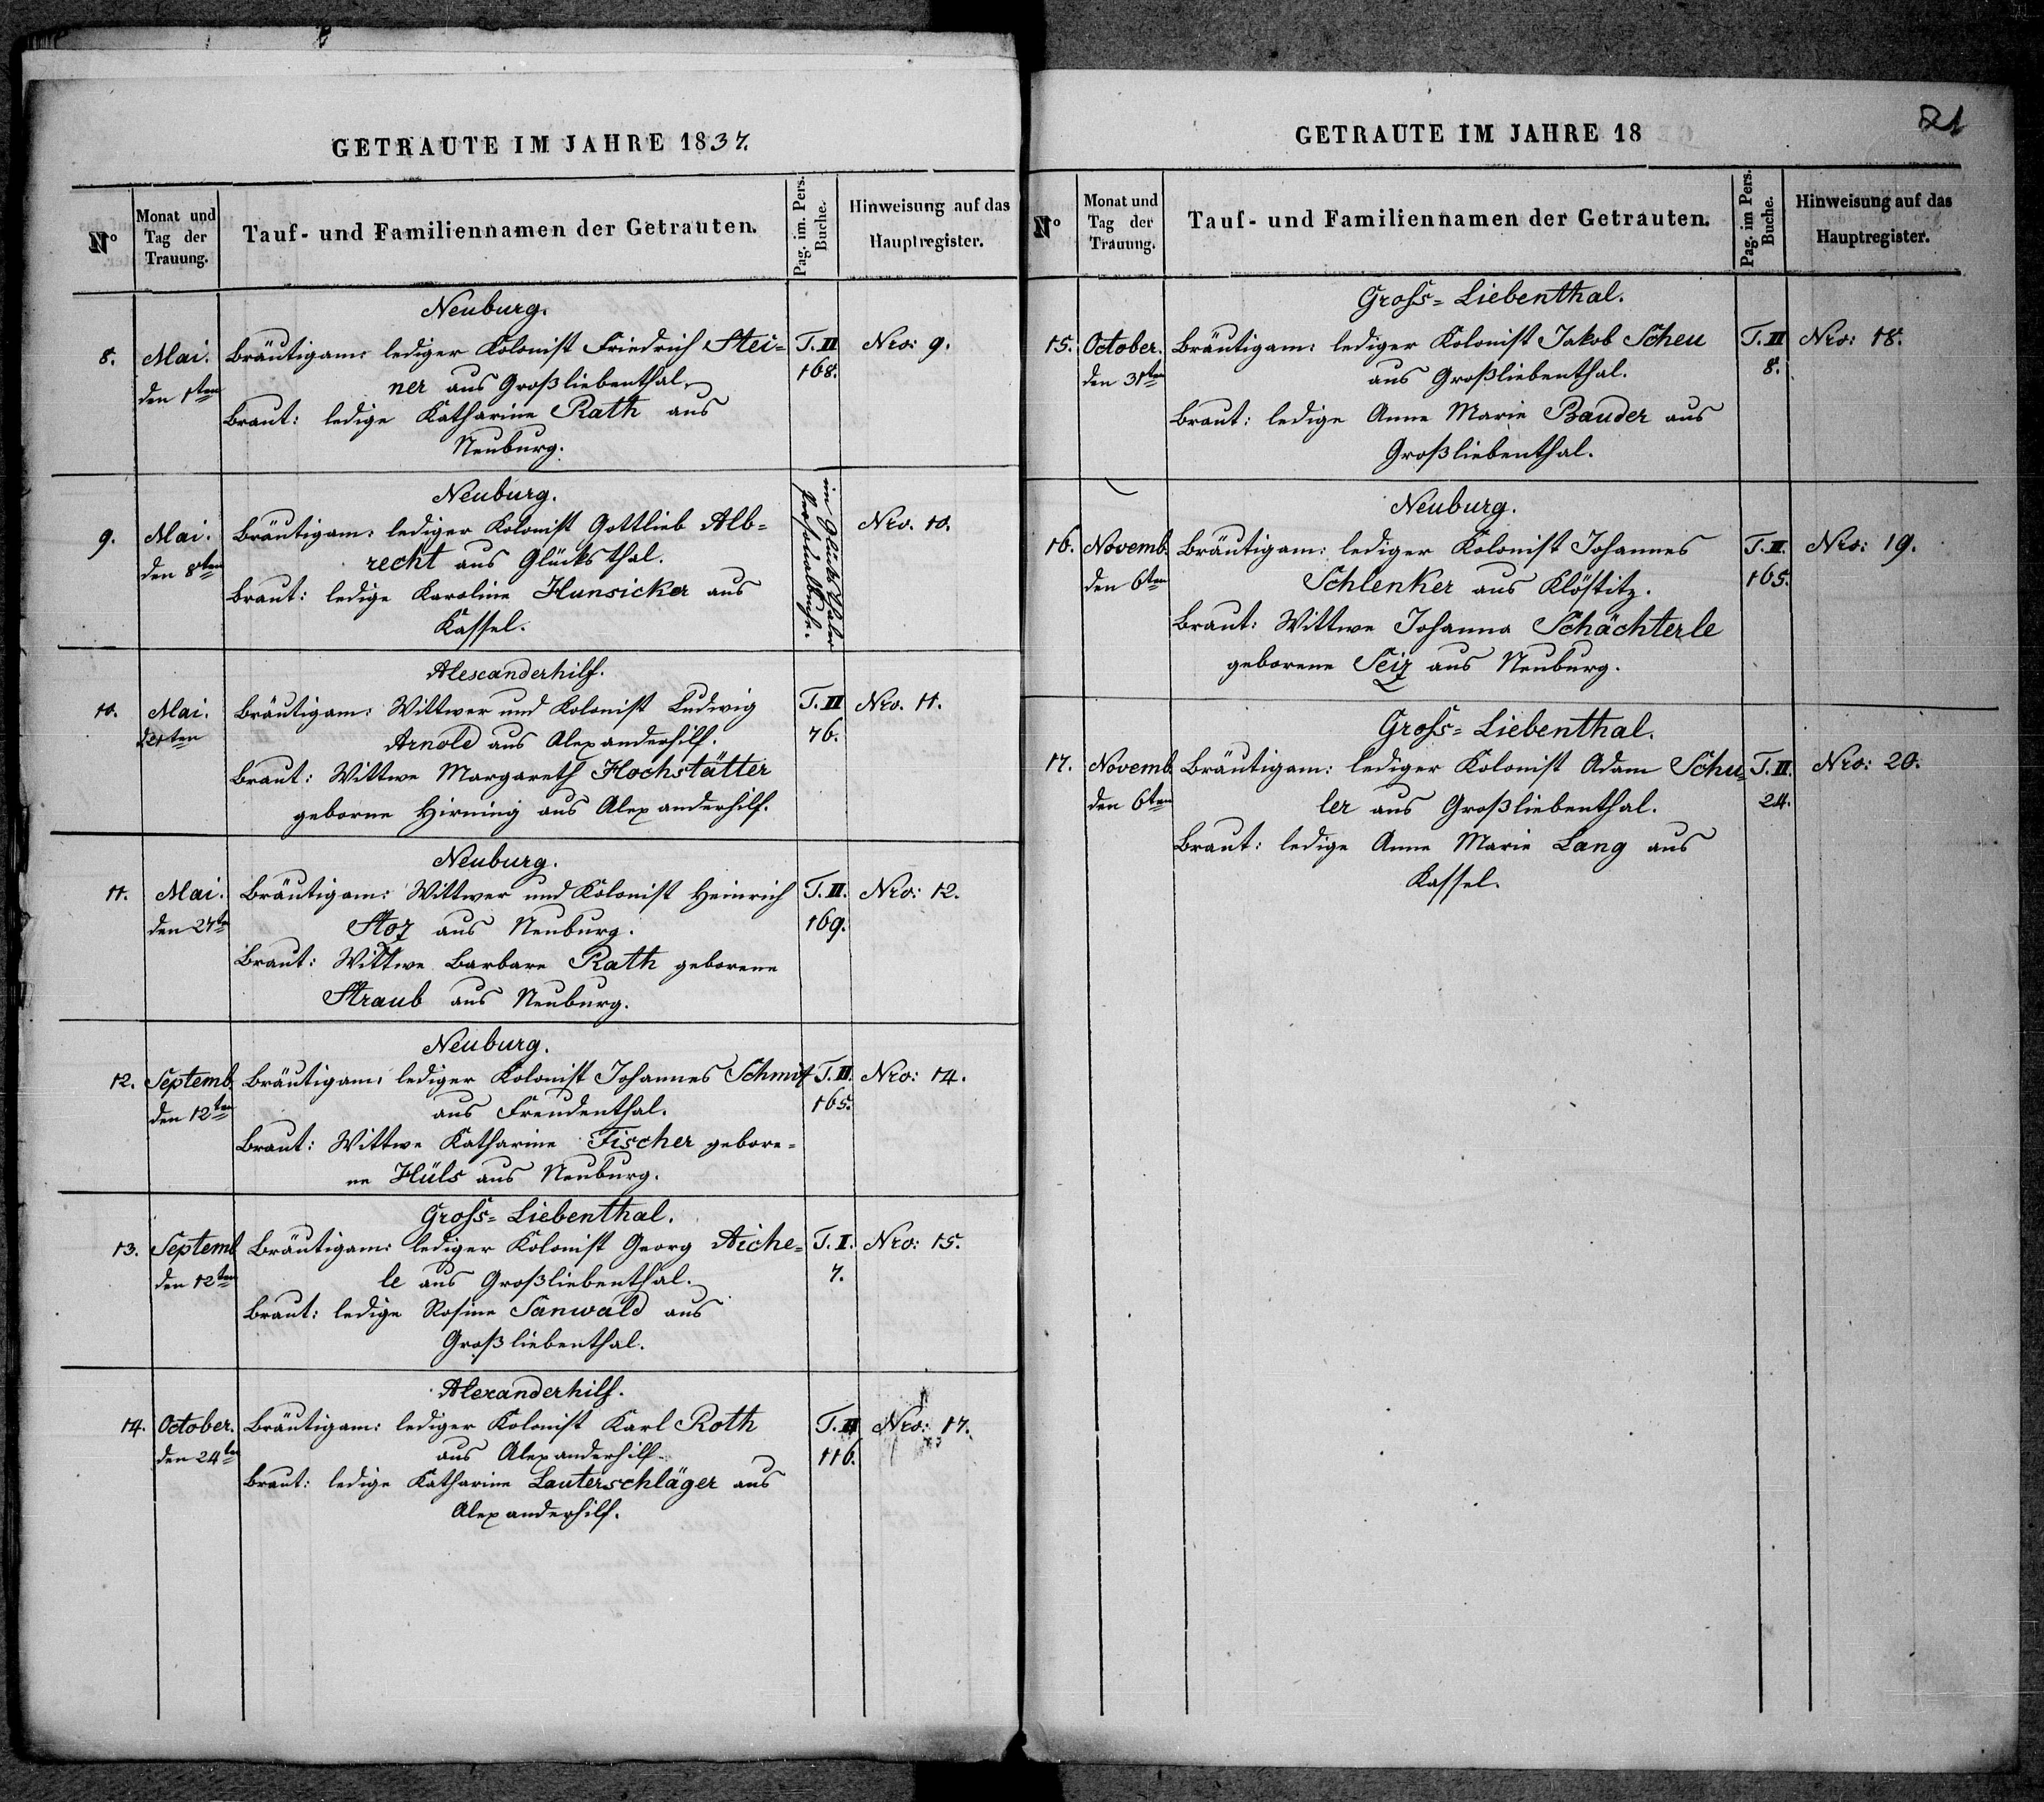 GETRAUTE IM JAHRE 1837.
No
Monat und Tag der Trauung.
Tauf- und Familiennamen der Getrauten.
Pag. im. Pers. Buche.
Hinweisung auf das Hauptregister.
Neuburg.
8. Mai. Bräutigam: lediger Kolonist Friedrich Stei= T. II Nro: 9.
den 1ten ner aus Großliebenthal. 168.
Braut: ledige Katharine Rath aus
Neuburg.
Neuburg.
9. Mai. Bräutigam: lediger Kolonist Gottlieb Alb= im Glücksthaler Nro. 10.
den 8ten recht aus Glücksthal. Personalbuche.
Braut: ledige Karoline Hunsicker aus
Kassel.
Alexanderhilf.
10. Mai. Bräutigam: Wittwer und Kolonist Ludwig T. II Nro. 11.
d 21ten Arnold aus Alexanderhilf. 76.
Braut: Wittwe Margareth Hochstätter
geborne Hirning aus Alexanderhilf.
Neuburg.
11. Mai. Bräutigam: Wittwer und Kolonist Heinrich T. II. Nro: 12.
den 27ten Stoz aus Neuburg. 169.
Braut: Wittwe Barbare Rath geborene
Straub aus Neuburg.
Neuburg.
12. Septemb. Bräutigam: lediger Kolonist Johannes Schmit T. II. Nro: 14.
den 12ten aus Freudenthal. 165.
Braut: Wittwe Katharine Fischer gebore=
ne Hüls aus Neuburg.
Gross=Liebenthal.
13. Septemb. Bräutigam: lediger Kolonist Georg Aiche= T. I. Nro: 15.
den 12ten le aus Großliebenthal. 7.
Braut: ledige Rosine Sanwald aus
Großliebenthal.
Alexanderhilf.
14. October. Bräutigam: lediger Kolonist Karl Roth T. II Nro: 17.
den 24ten aus Alexanderhilf. 116.
Braut: ledige Katharine Lauterschläger aus
Alexanderhilf.
21
GETRAUTE IM JAHRE 18
No
Monat und Tag der Trauung.
Tauf- und Familiennamen der Getrauten.
Pag. im Pers. Buche.
Hinweisung auf das Hauptregister.
Gross=Liebenthal.
15. October. Bräutigam: lediger Kolonist Jakob Scheu T. II Nro: 18.
den 31ten aus Großliebenthal. 8.
Braut: ledige Anne Marie Bauder aus
Großliebenthal.
Neuburg.
16. Novemb. Bräutigam: lediger Kolonist Johannes T. II. Nro: 19.
den 6ten Schlenker aus Klöstitz. 165.
Braut: Wittwe Johanna Schächterle
geborene Seiz aus Neuburg.
Gross=Liebenthal.
17. Novemb. Bräutigam: lediger Kolonist Adam Schu= T. II. Nro: 20.
den 6ten ler aus Großliebenthal. 24.
Braut: ledige Anne Marie Lang aus
Kassel.